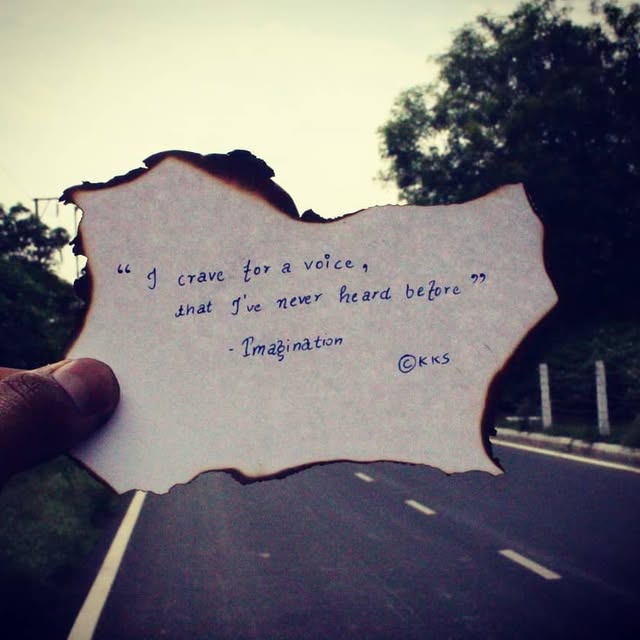 “ I crave for a voice,
that I've never heard before ”
- Imagination
© KKS